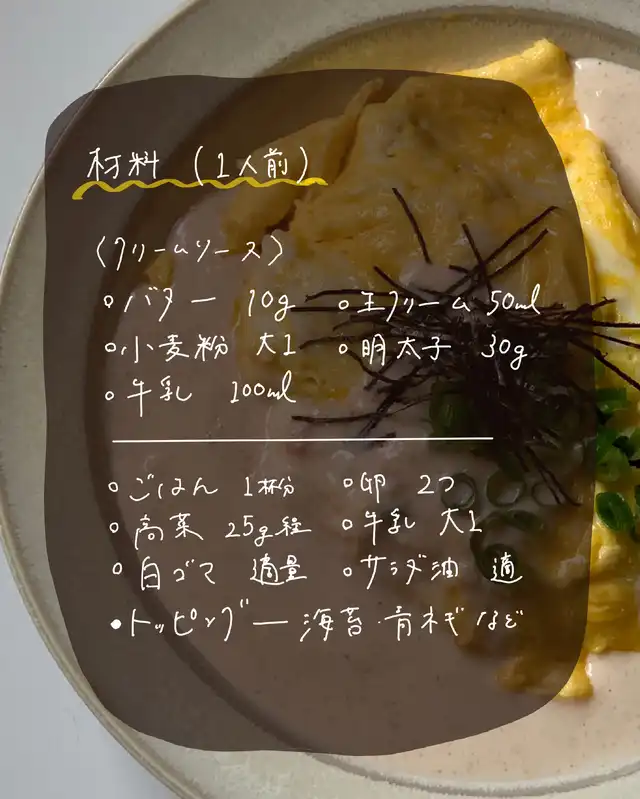 材料 (1人前)
〈クリームソース〉
○バター 10g ○生クリーム 50ml
○小麦粉 大1 ○明太子 30g
○牛乳 100ml
○ごはん 1杯分 ○卵 2つ
○高菜 25g程 ○牛乳 大1
○白ゴマ 適量 ○サラダ油 適
•トッピング― 海苔・青ネギ など